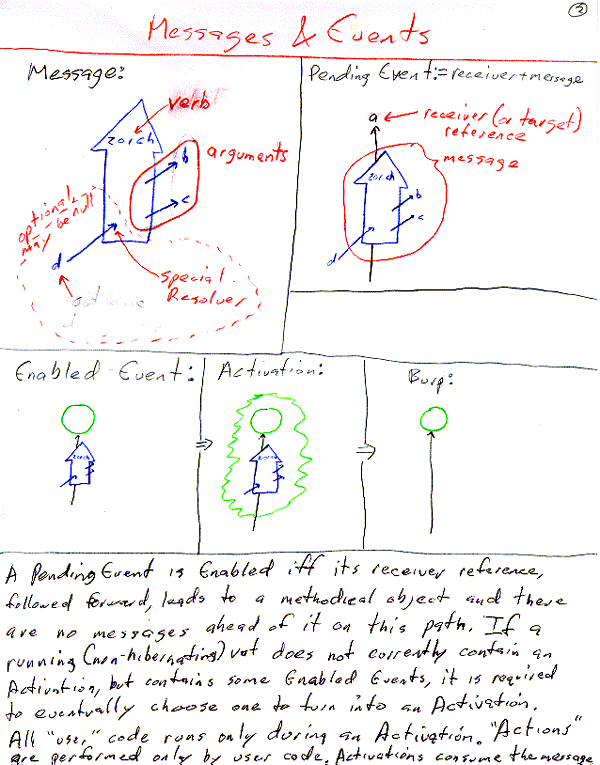 3
Messages & Events
Message:
verb
zorch
arguments
b
c
optional,
may be null
d
special
Resolver
Pending Event:= receiver+message
a
receiver (or target)
reference
message
zorch
b
c
d
Enabled Event:
zorch
Activation:
zorch
Burp:
A Pending Event is Enabled iff its receiver reference,
followed forward, leads to a methodical object and there
are no messages ahead of it on this path. If a
running (non-hibernating) vat does not currently contain an
Activation, but contains some Enabled Events, it is required
to eventually choose one to turn into an Activation.
All "user" code runs only during an Activation. "Actions"
are performed only by user code. Activations consume the message